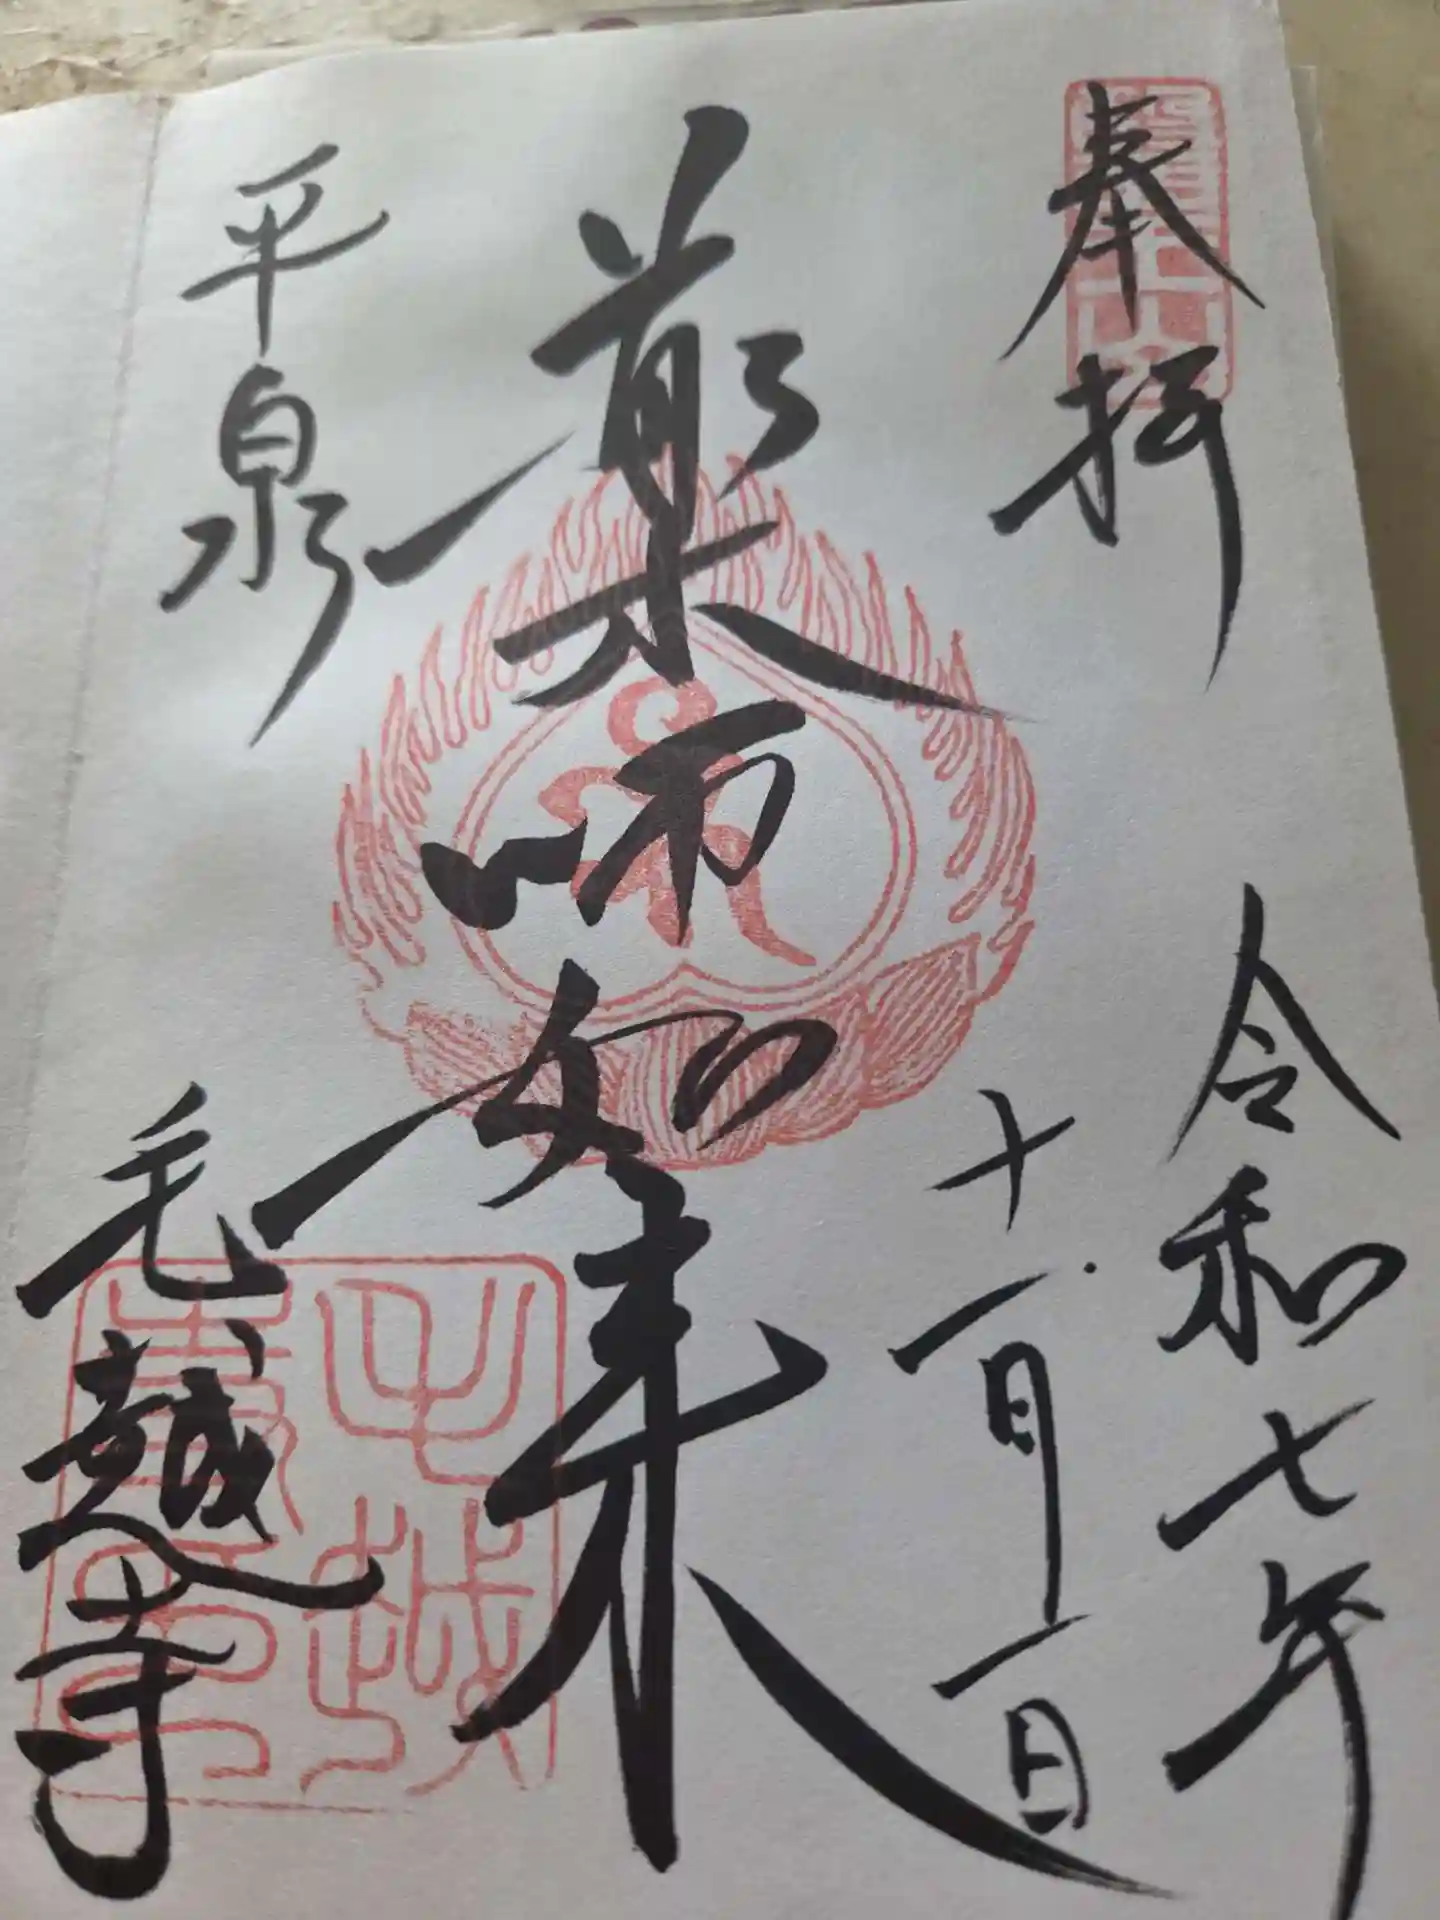 奉拝
令和七年
十一月一日
薬師如来
平泉
毛越寺
毛越寺印